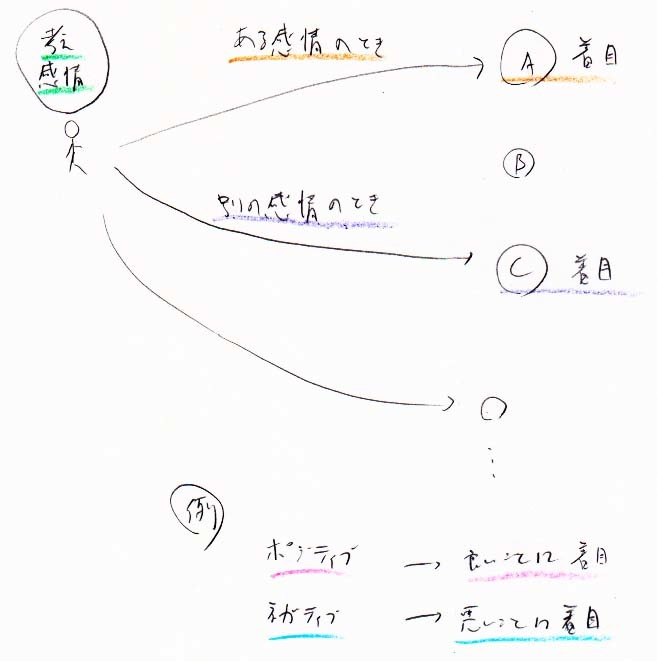 考え
感情
ある感情のとき
A 着目
B
別の感情のとき
C 着目
例
ポジティブ → 良いことに着目
ネガティブ → 悪いことに着目